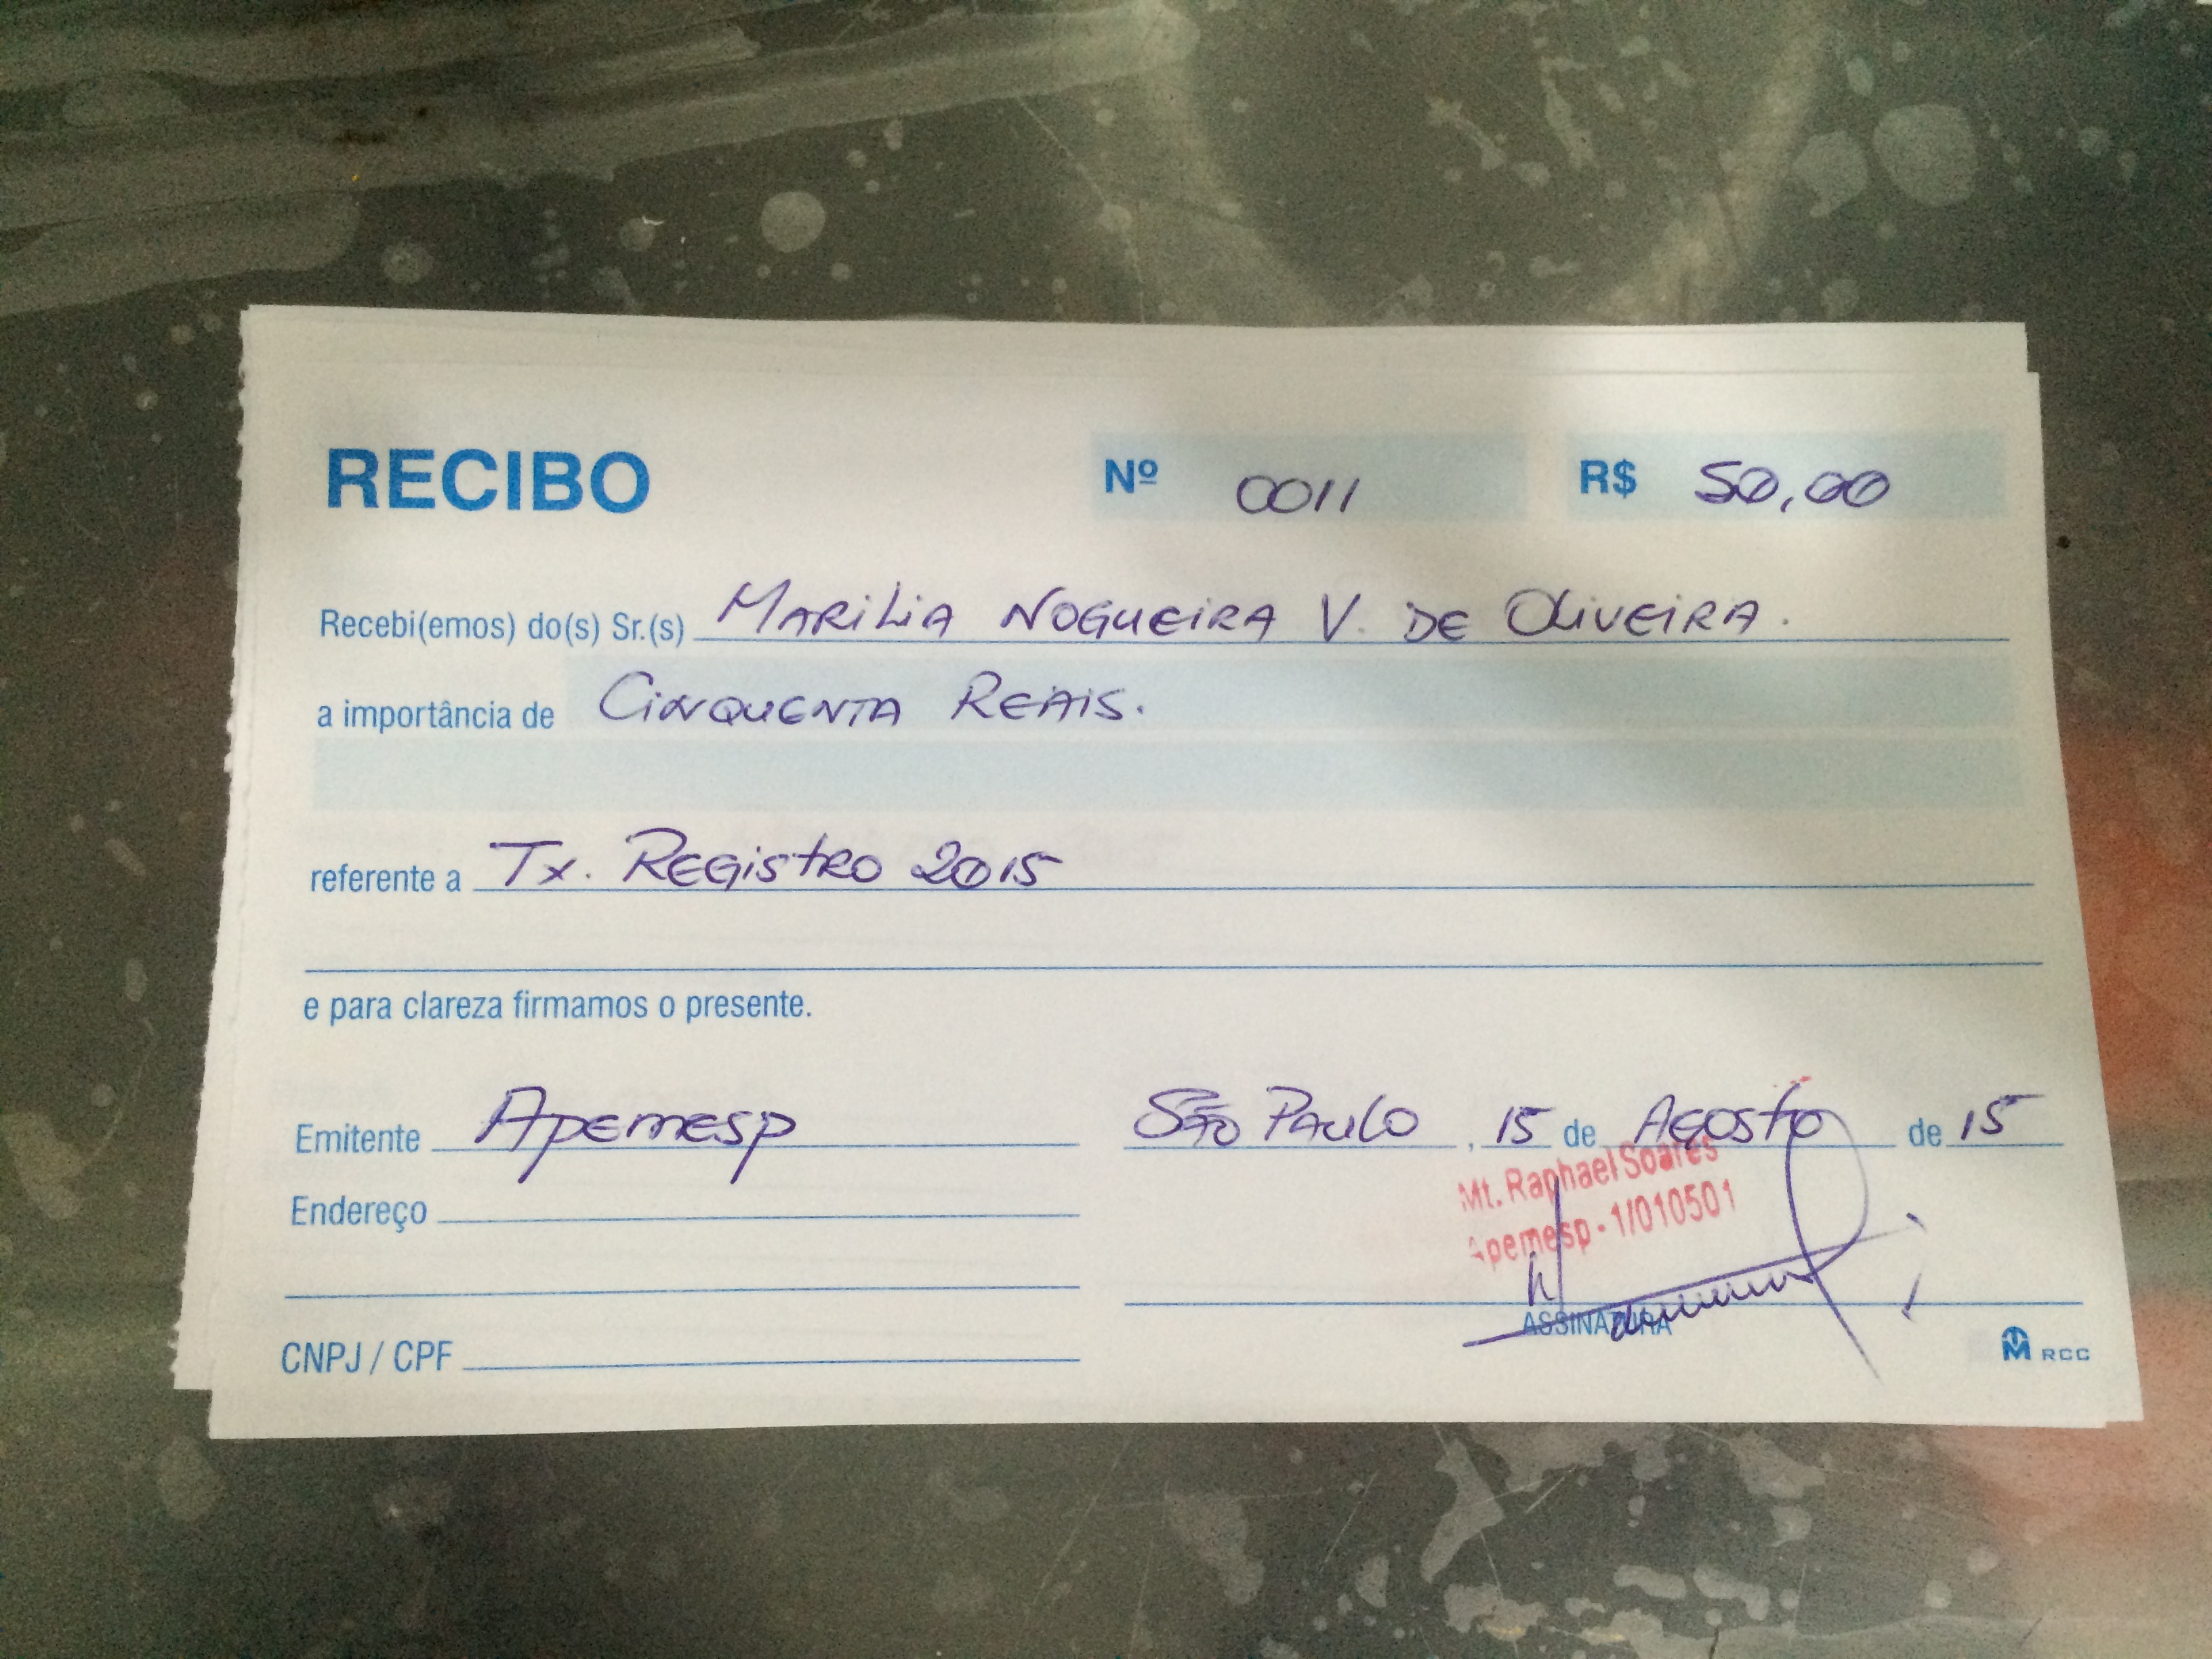 RECIBO Nº 0011 R$ 50,00
Recebi(emos) do(s) Sr.(s) MARILIA NOGUEIRA V. DE OLIVEIRA.
a importância de CINQUENTA REAIS.
referente a Tx. REGISTRO 2015
e para clareza firmamos o presente.
Emitente APEMESP SÃO PAULO, 15 de AGOSTO de 15
Mt. Raphael Soares
Endereço
Apemesp - 1/010501
ASSINATURA
CNPJ / CPF
RCC